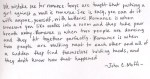 We mistake sex for romance. Guys are taught that putting a
girl against a wall is romance. Sex is easy, you can do it
with anyone, yourself, with batteries. Romance is when
someone you like walks into a room and they take your
breath away. Romance is when two people are dancing
and they fit together perfectly. Romance is when
two people are walking next to each other and all of
a sudden they find themselves holding hands, and
they don't know how that happened.
- John C. Moffi -